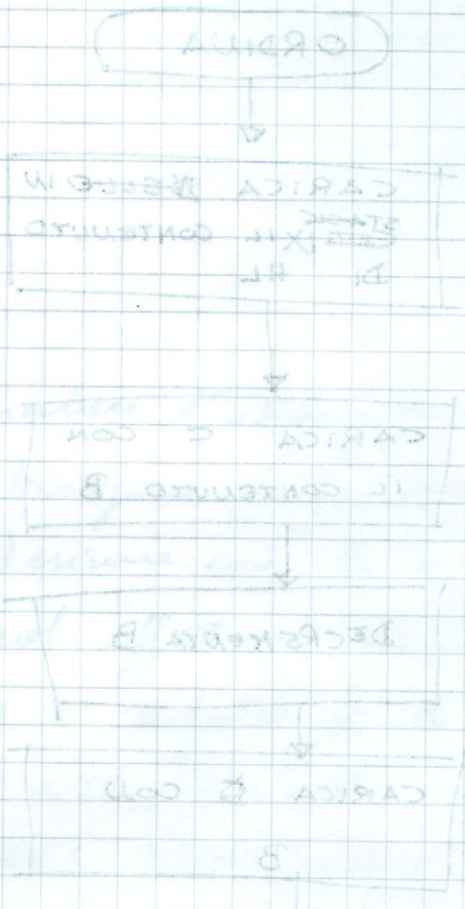 ORDINA
CARICA IN
IX IL CONTENUTO
DI HL
CARICA C CON
IL CONTENUTO B
DECREMENTA B
CARICA CON
B